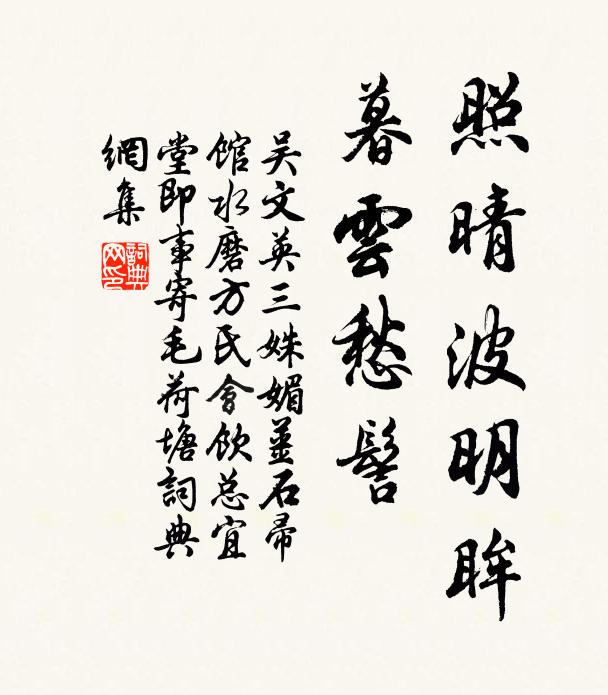 照晴波明眸
暮雲愁髻
吴文英三姝媚薑石帚
馆水磨方氏會饮总宜
堂即事寄毛荷塘詞典
網集
詞典网印